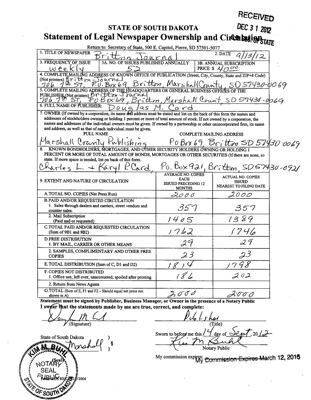 RECEIVED
DEC 31 2012
STATE OF SOUTH DAKOTA
Statement of Legal Newspaper Ownership and Circulation
Return to: Secretary of State, 500 E. Capitol, Pierre, SD 57501-5077
1. TITLE OF NEWSPAPER
Britton Journal
2. DATE
9/13/12
3. FREQUENCY OF ISSUE
weekly
3A. NO. OF ISSUES PUBLISHED ANNUALLY
52
3B. ANNUAL SUBSCRIPTION
PRICE $
4. COMPLETE MAILING ADDRESS OF KNOWN OFFICE OF PUBLICATION (Street, City, County, State and ZIP+4 Code)
(Not printers) Britton Journal
706 7th St. PO Box 69 Britton, Marshall County, SD 57430-0069
5. COMPLETE MAILING ADDRESS OF THE HEADQUARTERS OR GENERAL BUSINESS OFFICES OF THE
PUBLISHER (Not printers) Britton Journal
706 7th St. PO Box 69, Britton, Marshall County, SD 57430-0069
6. FULL NAME OF PUBLISHER:
Douglas M. Card
7. OWNER (If owned by a corporation, its name and address must be stated and also immediately
FULL NAME
COMPLETE MAILING ADDRESS
Marshall County Publishing
PO Box 69, Britton SD 57430-0069
8. KNOWN BONDHOLDERS, MORTGAGEES, AND OTHER SECURITY HOLDERS OWNING OR HOLDING 1
PERCENT OR MORE OF TOTAL AMOUNT OF BONDS, MORTGAGES OR OTHER SECURITIES (If there are none, so
state. If more space is needed, list on back of this form.
Charles L + Karyl P Card, PO Box 921, Britton, SD 57430-0921
9. EXTENT AND NATURE OF CIRCULATION
AVERAGE NO. COPIES
EACH
ISSUE DURING PRECEDING 12
MONTHS
ACTUAL NO. COPIES
ISSUED
NEAREST TO FILING DATE
A. TOTAL NO. COPIES (Net Press Run)
2000
2000
B. PAID AND/OR REQUESTED CIRCULATION
1. Sales through dealers and carriers, street vendors and
counter sales.
357
357
2. Mail Subscription
(Paid and/or requested)
1405
1389
C. TOTAL PAID AND/OR REQUESTED CIRCULATION
(Sum of 9B1 and 9B2)
1762
1746
D. FREE DISTRIBUTION
1. BY MAIL, CARRIER OR OTHER MEANS
29
29
2. SAMPLES, COMPLIMENTARY, AND OTHER FREE
COPIES
23
23
E. TOTAL DISTRIBUTION (Sum of C, D1 and D2)
1814
1798
F. COPIES NOT DISTRIBUTED
1. Office use, left over, unaccounted, spoiled after printing
186
202
2. Return from News Agents
G. TOTAL (Sum of E, F1 and F2 - Should equal net press run
shown in A)
2000
2000
Statement must be signed by Publisher, Business Manager, or Owner in the presence of a Notary Public
I swear that the statements made by me are true, correct, and complete:
(Signature)
Publisher
(Title)
State of South Dakota
County of Marshall
Sworn to before me this 14 day of Sept, 2012
Kim M. Buhl
Notary Public
My commission expires
My Commission Expires March 12, 2016
KIM M. BUHL
NOTARY
SEAL
PUBLIC
STATE OF SOUTH DAKOTA